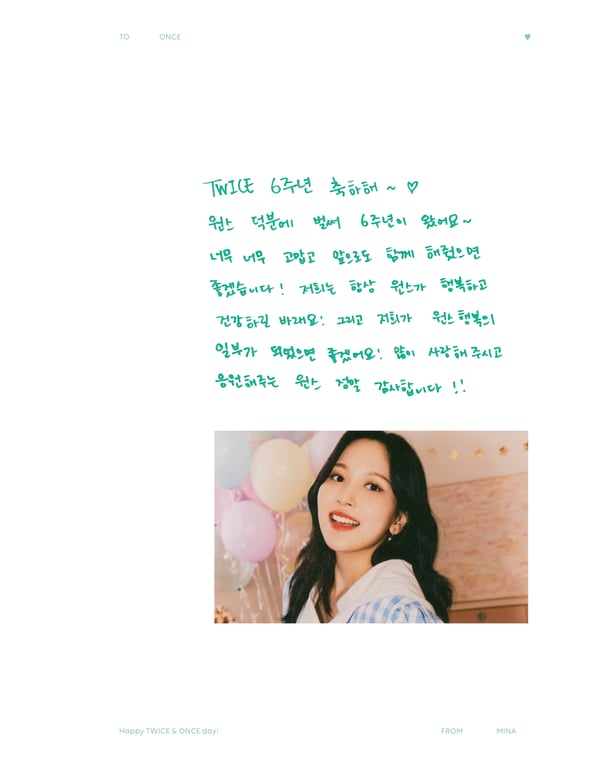 TO ONCE ♥
TWICE 6주년 축하해 ~ ♡
원스 덕분에 벌써 6주년이 왔어요 ~
너무 너무 고맙고 앞으로도 함께 해줬으면
좋겠습니다! 저희는 항상 원스가 행복하고
건강하길 바래요! 그리고 저희가 원스 행복의
일부가 되었으면 좋겠어요! 많이 사랑해 주시고
응원해주는 원스 정말 감사합니다 !!
Happy TWICE & ONCE day! FROM MINA